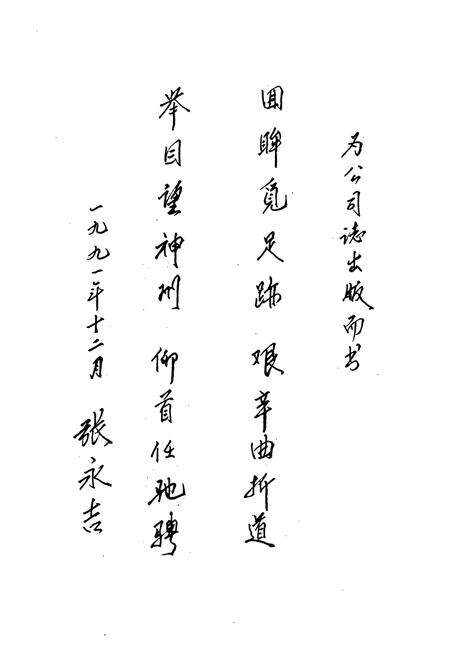 为公司誌出版而书
回眸觅足跡 艰辛曲折道
举目望神州 仰首任驰骋
一九九一年十二月 张永吉